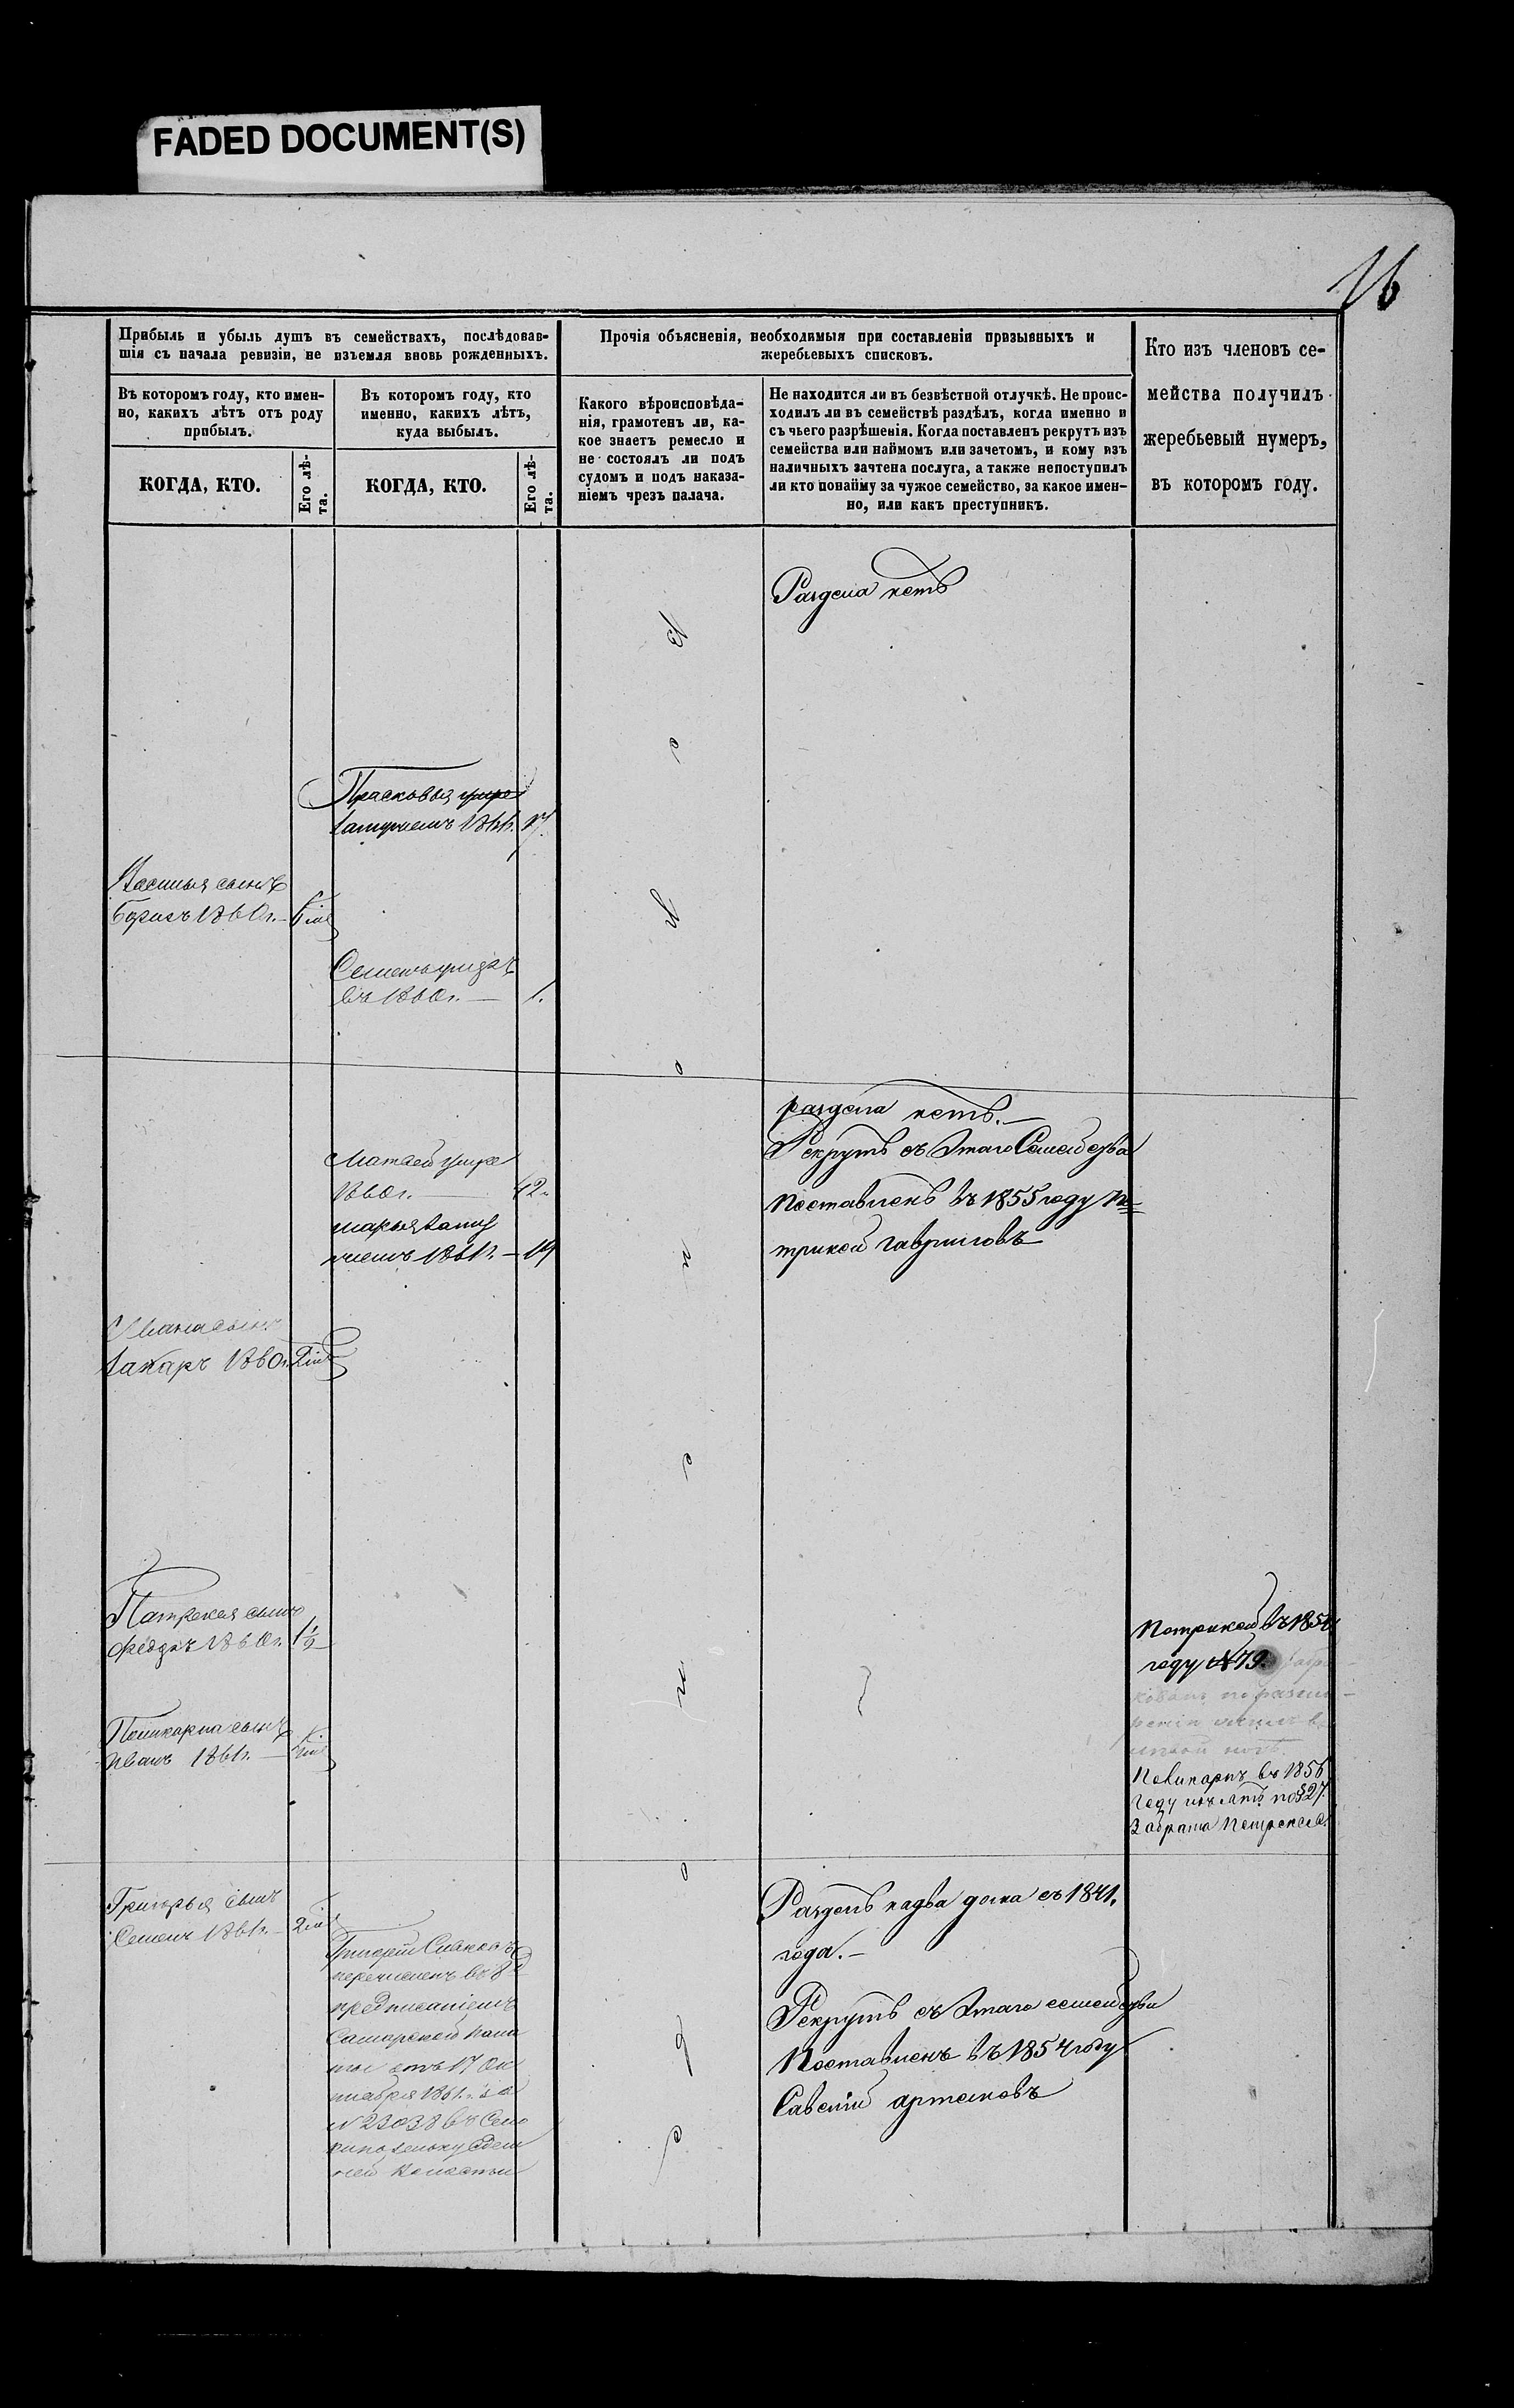 FADED DOCUMENT(S)
16
Прибыль и убыль душъ въ семействахъ, послѣдовав-
шія съ начала ревизіи, не изъемля вновь рожденныхъ.
Прочія объясненія, необходимыя при составленіи призывныхъ и
жеребьевыхъ списковъ.
Кто изъ членовъ се-
мейства получилъ
жеребьевый нумеръ,
въ которомъ году.
Въ которомъ году, кто имен-
но, какихъ лѣтъ отъ роду
прибылъ.
Въ которомъ году, кто
именно, какихъ лѣтъ,
куда выбылъ.
Какого вѣроисповѣда-
нія, грамотенъ ли, ка-
кое знаетъ ремесло и
не состоялъ ли подъ
судомъ и подъ наказа-
ніемъ чрезъ палача.
Не находится ли въ безвѣстной отлучкѣ. Не проис-
ходилъ ли въ семействѣ раздѣлъ, когда именно и
съ чьего разрѣшенія. Когда поставленъ рекрутъ изъ
семейства или наймомъ или зачетомъ, и кому изъ
наличныхъ зачтена послуга, а также непоступилъ
ли кто понайму за чужое семейство, за какое имен-
но, или какъ преступникъ.
КОГДА, КТО.
Его лѣ-
та.
КОГДА, КТО.
Его лѣ-
та.
Раздела нетъ
Прасковья умре
замужемъ 1866г.
Василья сынъ
Борисъ 1860г.
Семенъ
въ 1860г. — 1.
раздела нетъ. —
Рекрутъ съ этаго Семейства
поставленъ въ 1855 году Па-
трикей гавриловъ
Матвей умре
1860г. — 42.
марья заму
жемъ 1861г. — 19
Ивана сынъ
Захаръ 1860г.
Патрекея сынъ
Федоръ 1860г. 1½
Поликарпа сынъ
Иванъ 1861г. —
Патрикей въ 1854
году №79.
Поликарпъ въ 1856
году
За брата Петрекея.
Григорья сынъ
Семенъ 1861г. —
Григорий
перечисленъ въ
предписаниемъ
Самарской пала
ты отъ 17 Ок
тября 1861г. за
№23038 въ
волости
Разделъ надва дома съ 1841.
года. —
Рекрутъ съ этаго семейства
Поставленъ въ 1854 году
Савелий артемовъ